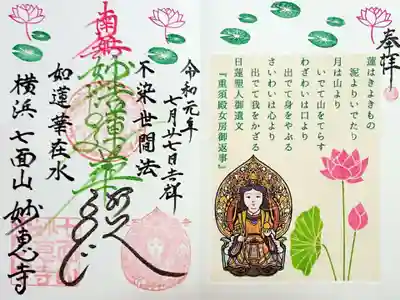 奉拝
蓮はきよきもの
泥よりいでたり
月は山より
いでて山をてらす
わざわいは口より
出でて身をやぶる
さいわいは心より
出でて我をかざる
日蓮聖人御遺文
『重須殿女房御返事』
令和元年
七月廿七日吉祥
不染世間法
南無妙法蓮華経
如蓮華在水
横浜 七面山 妙恵寺